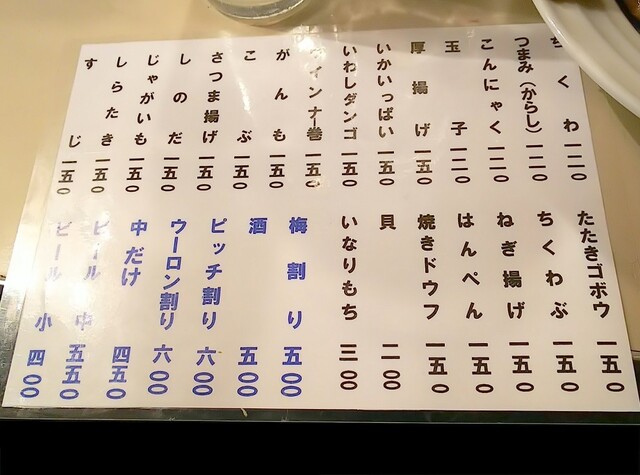 ちくわ 一二〇
つまみ(からし) 一二〇
こんにゃく 一二〇
玉子 一二〇
厚揚げ 一五〇
いかいっぱい 一五〇
いわしダンゴ 一五〇
ウインナー巻 一五〇
がんも 一五〇
こぶ 一五〇
さつま揚げ 一五〇
しのだ 一五〇
じゃがいも 一五〇
しらたき 一五〇
すじ 一五〇
たたきゴボウ 一五〇
ちくわぶ 一五〇
ねぎ揚げ 一五〇
はんぺん 一五〇
焼きドウフ 一五〇
貝 二〇〇
いなりもち 三〇〇
梅割り 五〇〇
酒 五〇〇
ピッチ割り 六〇〇
ウーロン割り 六〇〇
中だけ 四五〇
ビール 中 五五〇
ビール 小 四〇〇